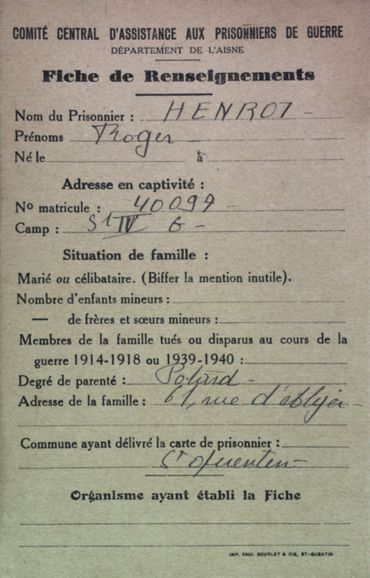 COMITÉ CENTRAL D'ASSISTANCE AUX PRISONNIERS DE GUERRE
DÉPARTEMENT DE L'AISNE
Fiche de Renseignements
Nom du Prisonnier : HENROT
Prénoms Roger
Né le à
Adresse en captivité :
No matricule : 40097
Camp : St IV G
Situation de famille :
Marié ou célibataire. (Biffer la mention inutile).
Nombre d'enfants mineurs :
— de frères et sœurs mineurs :
Membres de la famille tués ou disparus au cours de la
guerre 1914-1918 ou 1939-1940 :
Degré de parenté :
Adresse de la famille : 61, rue
Commune ayant délivré la carte de prisonnier :
St Quentin
Organisme ayant établi la Fiche
IMP. PAUL BOURLET & CIE, ST-QUENTIN